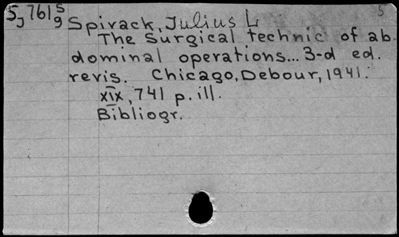 5J761 5/9 Spivack, Julius L
The Surgical technic of ab
dominal operations... 3-d ed.
revis. Chicago, Debour, 1941.
XIX, 741 p. ill.
Bibliogr.